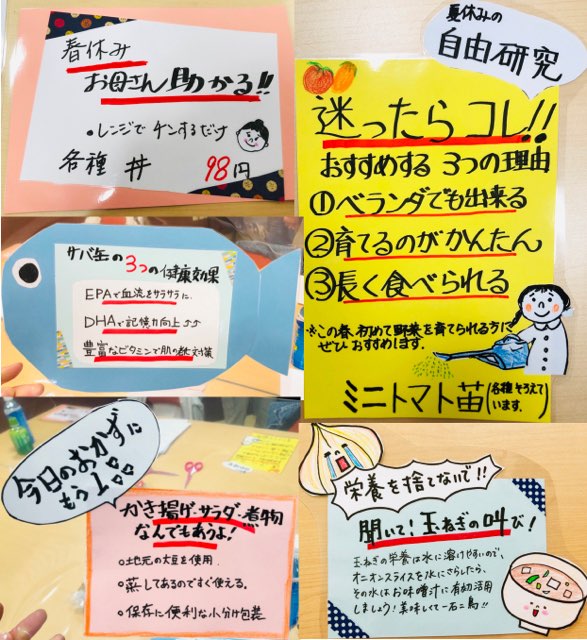 春休み
お母さん助かる!!
・レンジでチンするだけ
各種 丼 98円
夏休みの
自由研究
迷ったらコレ!!
おすすめする 3つの理由
①ベランダでも出来る
②育てるのがかんたん
③長く食べられる
※この春、初めて野菜を育てられる方に
ぜひ おすすめします。
ミニトマト苗(各種そろえて
います。)
サバ缶の3つの健康効果
EPAで血流をサラサラに
DHAで記憶力向上♪♪
豊富なビタミンで肌の老化対策
今日のおかずに
もう1品
かき揚げ・サラダ・煮物
なんでもあうよ!
○地元の大豆を使用
○蒸してあるのですぐ使える。
○保存に便利な小分け包装
栄養を捨てないで!!
聞いて!玉ねぎの叫び!
玉ねぎの栄養は水に溶けやすいので、
オニオンスライスを水にさらしたら、
その水はお味噌汁に有効活用
しましょう!美味しくて一石二鳥!!